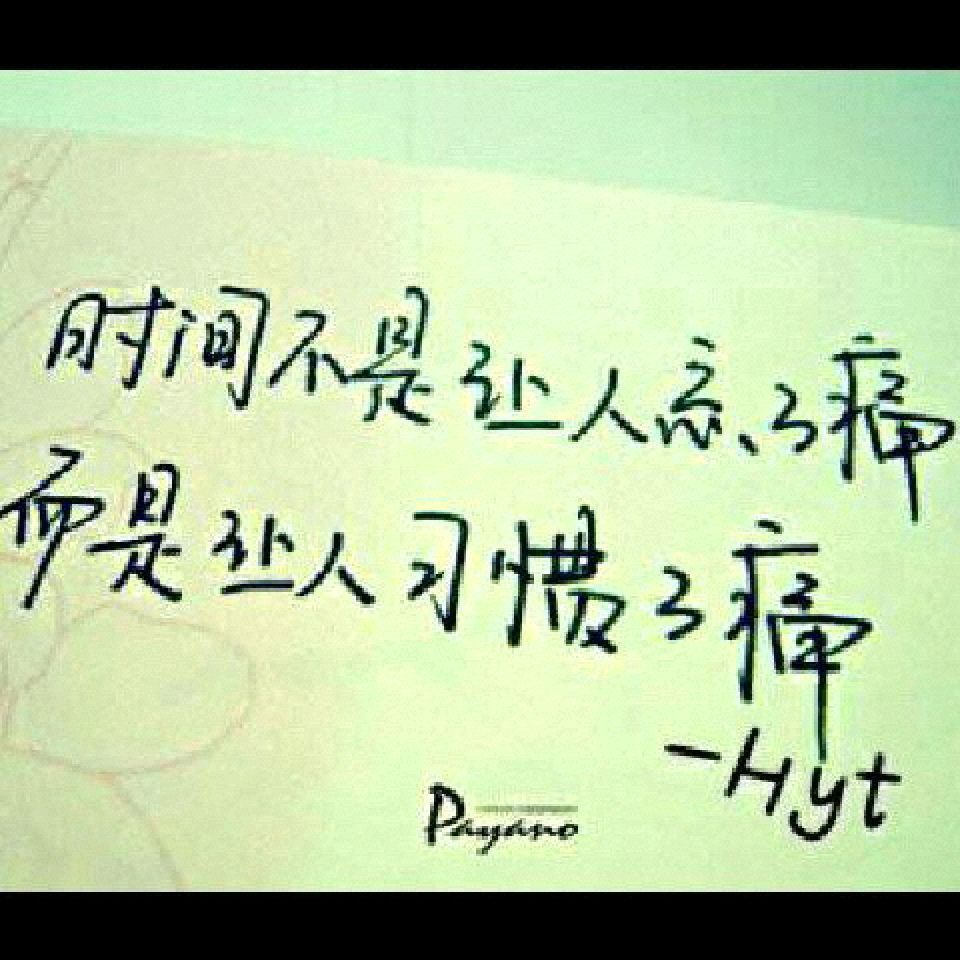 时间不是让人忘了痛
而是让人习惯了痛
-Hyt
Payano